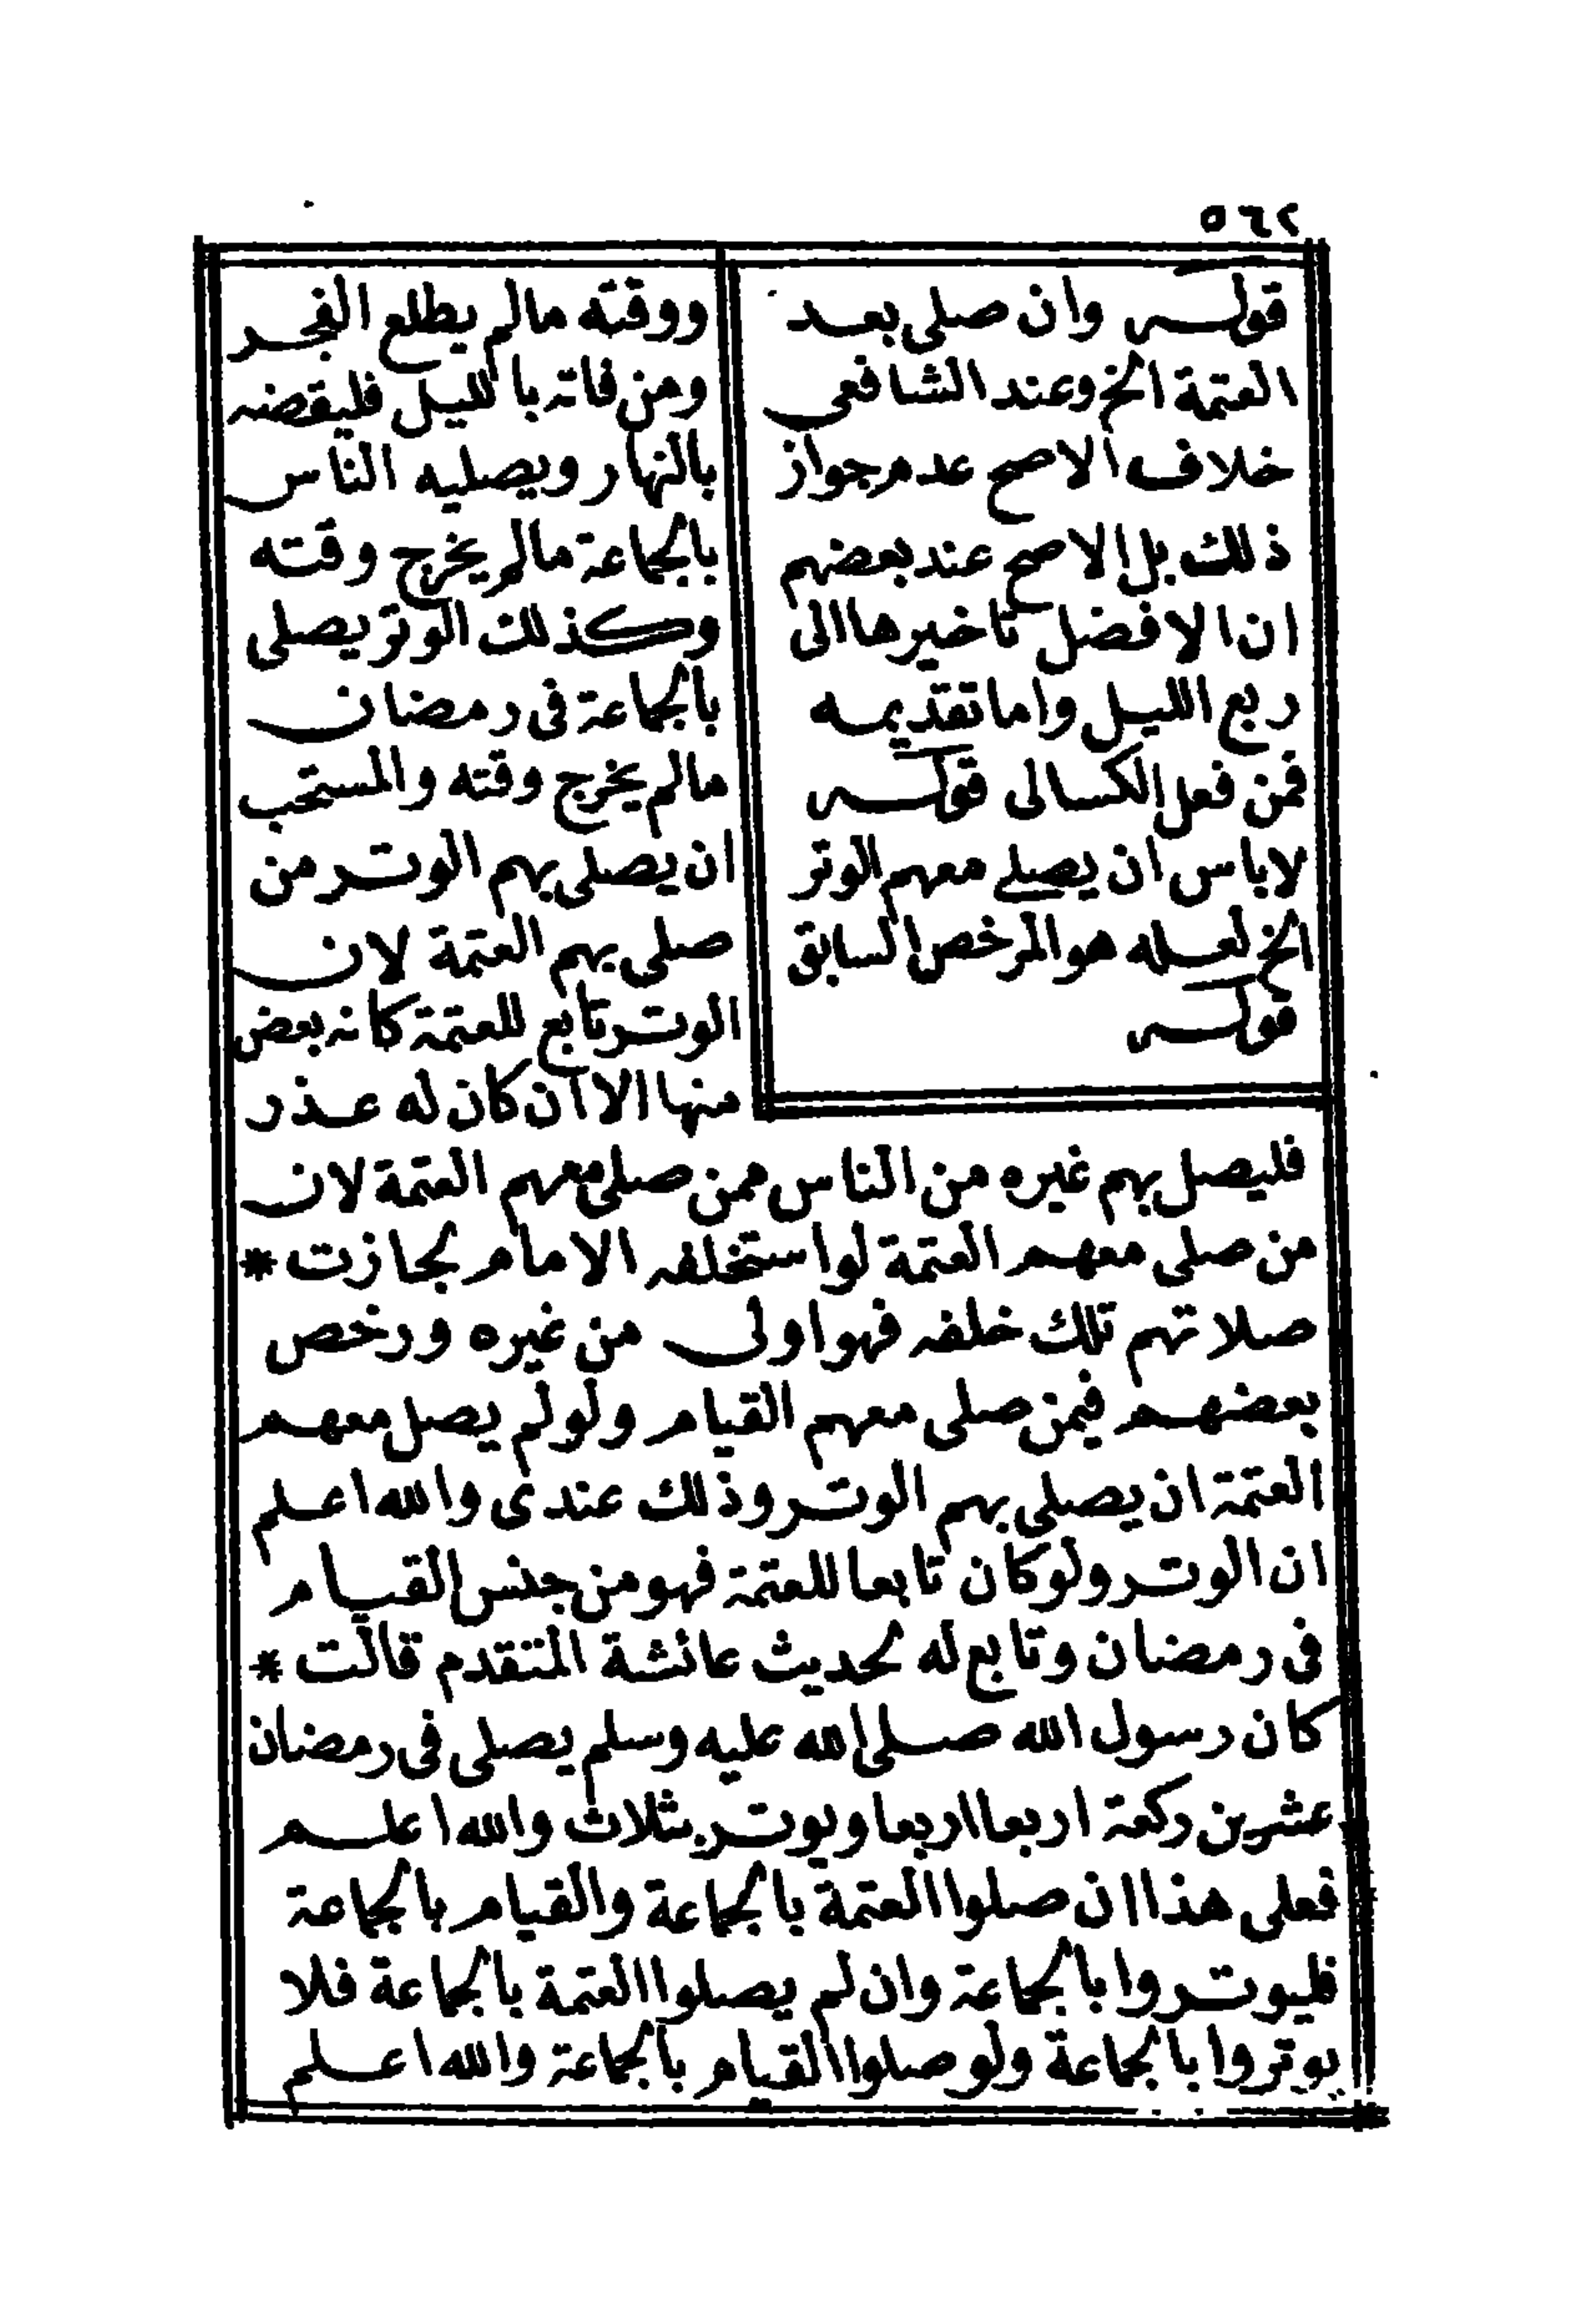 ٥٦٢
قوله وان صلى بعد
العتمة الخ وعند الشافعى
خلاف الاصح عدم جواز
ذلك بل الاصح عند بعضهم
ان الافضل تاخيرها الى
ربع الليل واما تقديمه
فمن فعل الكسالى قوله
لاباس ان يصلى معهم الوتر
الخ لعله هو المرخص السابق
قوله
ووقته مالم يطلع الفجر
ومن فاته بالليل فليقضه
بالنهار ويصليه الناس
بالجماعة مالم يخرج وقته
وكذلك الوتر يصلى
بالجماعة فى رمضان
مالم يخرج وقته والمستحب
ان يصلى بهم الوتر من
صلى بهم العتمة لان
الوتر تابع للعتمة كانه بعض
منها الا ان كان له عذر
فليصل بهم غيره من الناس ممن صلى معهم العتمة لان
من صلى معهم العتمة لو استخلفه الامام لجازت *
صلاتهم تلك خلفه فهو اولى من غيره ورخص
بعضهم فيمن صلى معهم القيام ولو لم يصل معهم
العتمة ان يصلى بهم الوتر وذلك عندى والله اعلم
ان الوتر ولو كان تابعا للعتمة فهو من جنس القيام
فى رمضان وتابع له لحديث عائشة المتقدم قالت *
كان رسول الله صلى الله عليه وسلم يصلى فى رمضان
عشرين ركعة اربعا اربعا ويوتر بثلاث والله اعلم
فعلى هذا ان صلوا العتمة بالجماعة والقيام بالجماعة
فليوتروا بالجماعة وان لم يصلوا العتمة بالجماعة فلا
يوتروا بالجماعة ولو صلوا القيام بالجماعة والله اعلم